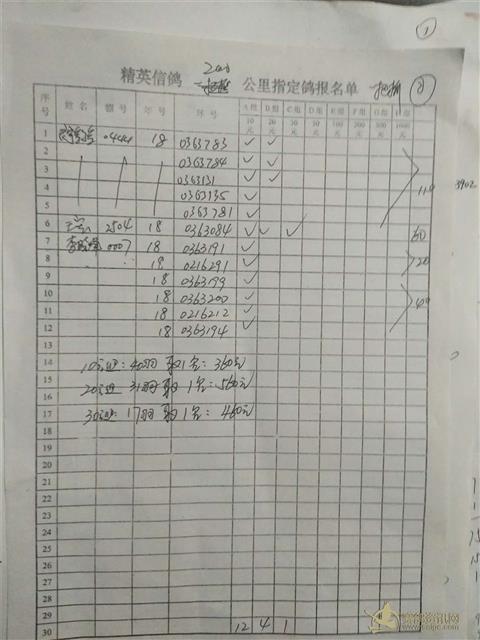 ①
精英信鸽 公里指定鸽报名单 ②
序号 姓名 棚号 年号 环号 A组 B组 C组 D组 E组 F组 G组 H组
10元 20元 30元 50元 100元 200元 500元 1000元
1 0444 18 0363783 ✓ ✓
2 0363784 ✓ ✓
3 0363131 ✓ ✓
4 0363135 ✓
5 0363781 ✓
110
3902
6 2504 18 0363084 ✓ ✓ ✓
60
7 0007 18 0363191 ✓
8 19 0216291 ✓
20
9 18 0363199 ✓
10 18 0363200 ✓
11 18 0216212 ✓
12 18 0363194 ✓
40
13
14 10元组: 40羽取1名: 360元
15
16 20元组 31羽取1名: 560元
17 30元组: 17羽取1名: 460元
18
19
20
21
22
23
24
25
26
27
28
29
30 12 4 1